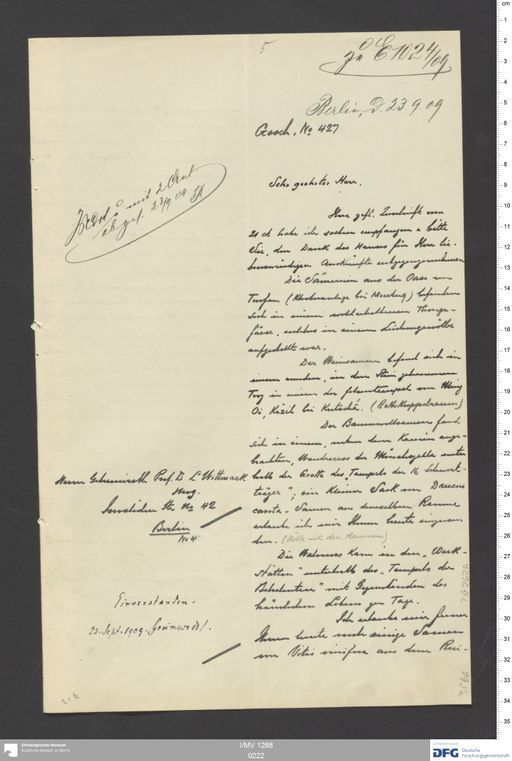 5
zu E. 1024/09
Berlin, d. 23.9.09
Gesch. No 427
Sehr geehrter Herr.
Ihre gefl. Zuschrift vom
21 ct habe ich soeben empfangen u. bitte
Sie, den Dank des Hauses für Ihre
Auskünfte entgegenzunehmen
Die Sämereien aus der Oase von
Turfan (bei Murtuq) befanden
sich in einem wohlerhaltenen Thonge-
fässe, welches in einem
aufgestellt war.
Der Weinsamen befand sich in
einem runden, in den Stein gehauenen
Trog in einem der Felsentempel von Ming
Oi, Kizil bei Kutschä. (Rothkuppelraum)
Der Baumwollsamen fand
sich in einem, neben dem Kamin ange-
brachten, der Mönchszelle unter
halb der Grotte des „Tempels der 16 Schwert-
träger"; ein kleiner Sack von Daucus
carota-Samen aus demselben Raume
erlaube ich mir Ihnen heute
den. (Höhle mit dem Kaminen)
Die Walnuss kam in den „Werk-
stätten" unterhalb des „Tempels der
" mit Gegenständen des
häuslichen Lebens zu Tage.
Ich erlaube mir ferner
Ihnen heute noch einige Samen
von Vitis vinifera aus dem Rui-
mit 2
abges. 23/9 09
Herrn Geheimrath Prof. Dr. L. Wittmack
Hwg.
Invaliden Str. No 42
Berlin
N. 4
Einverstanden.
23. Sept. 1909. Grünwedel.
Ethnologisches Museum
Staatliche Museen zu Berlin
I/MV 1268
0222
DFG
Deutsche
Forschungsgemeinschaft
cm